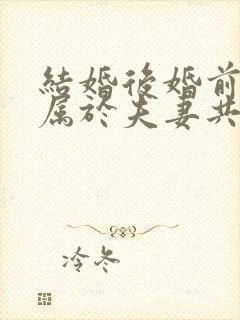 結婚後婚前
属於夫妻共
冷冬